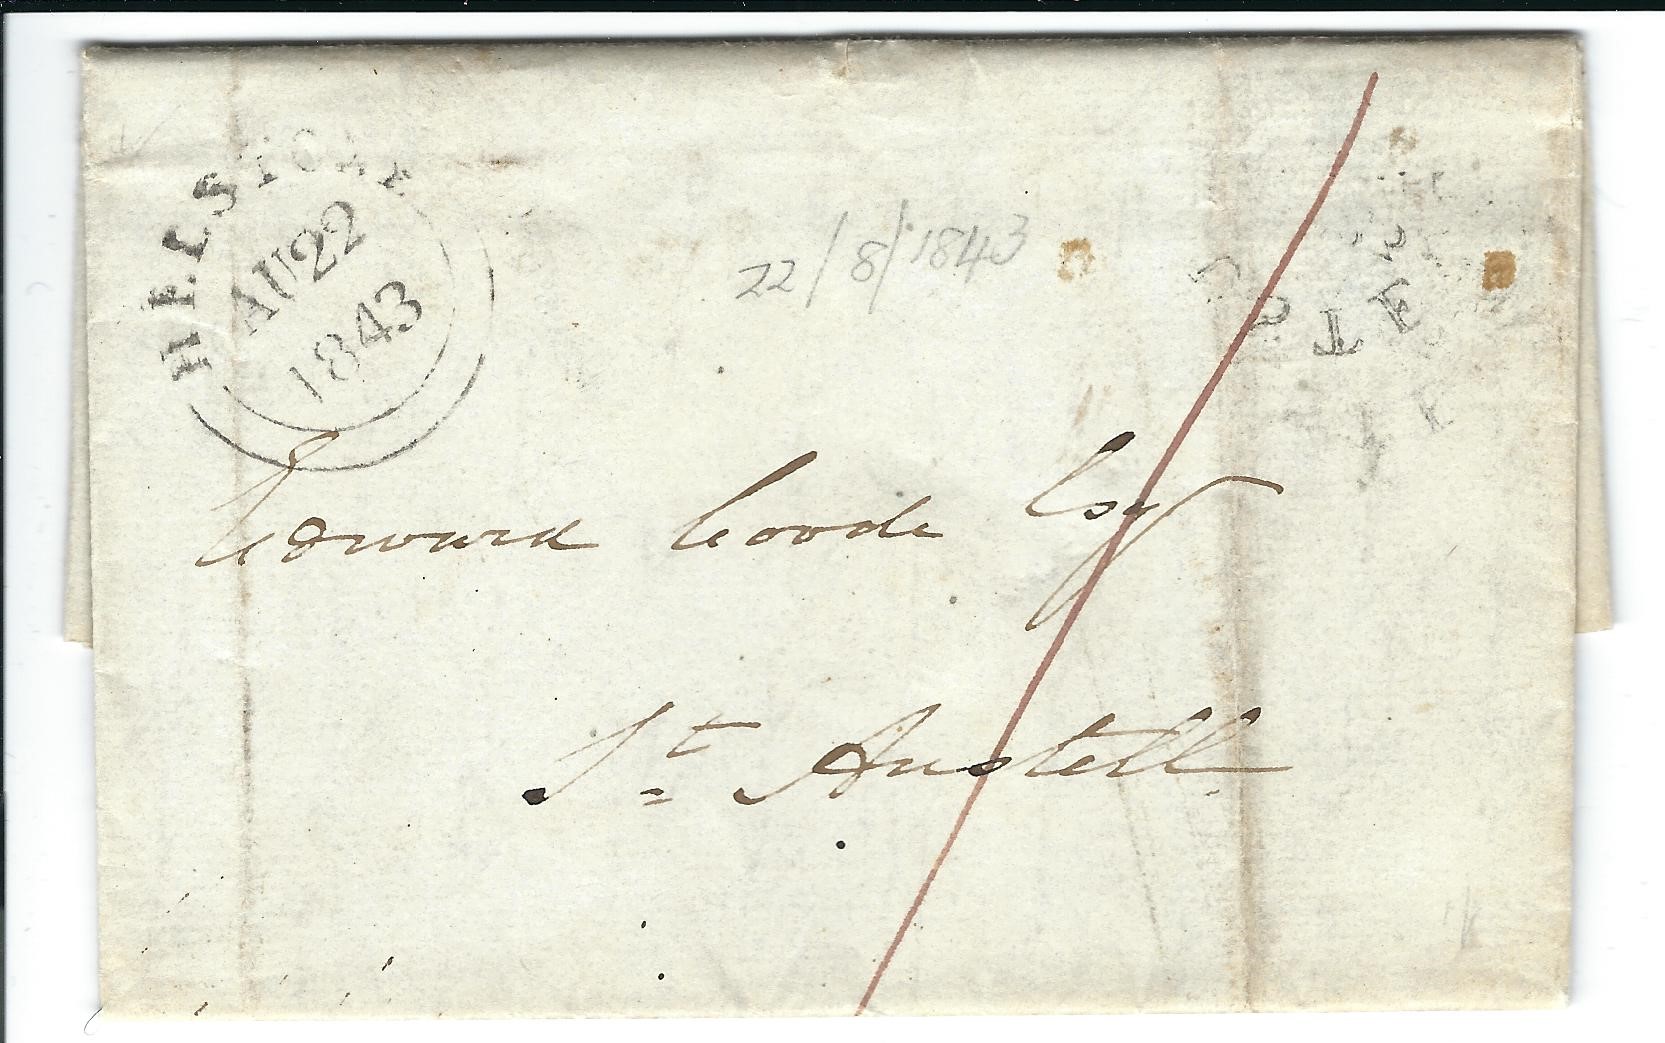 HELSTON
AU22
1843
22/8/1843
Edward Coode Esq
St Austell